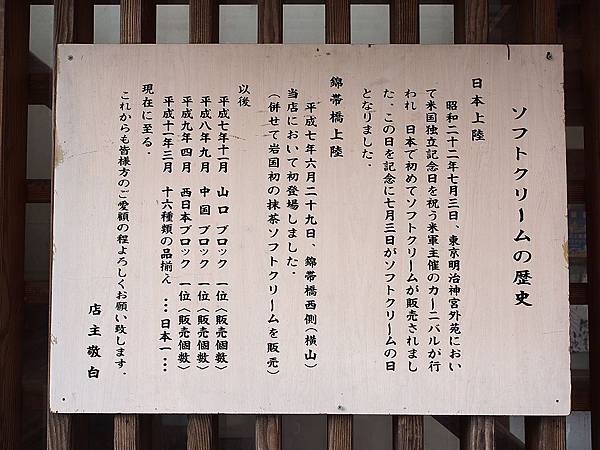 ソフトクリームの歴史
日本上陸
昭和二十二年七月三日、東京明治神宮外苑におい
て米国独立記念日を祝う米軍主催のカーニバルが行
われ 日本で初めてソフトクリームが販売されまし
た。この日を記念に七月三日がソフトクリームの日
となりました。
錦帯橋上陸
平成七年六月二十九日、錦帯橋西側(横山)
当店において初登場しました。
(併せて岩国初の抹茶ソフトクリームを販売)
以後
平成七年十一月 山口ブロック 一位〈販売個数〉
平成八年九月 中国ブロック 一位〈販売個数〉
平成九年四月 西日本ブロック 一位〈販売個数〉
平成十一年三月 十六種類の品揃え …日本一…
現在に至る。
これからも皆様方のご愛顧の程よろしくお願い致します。
店主敬白